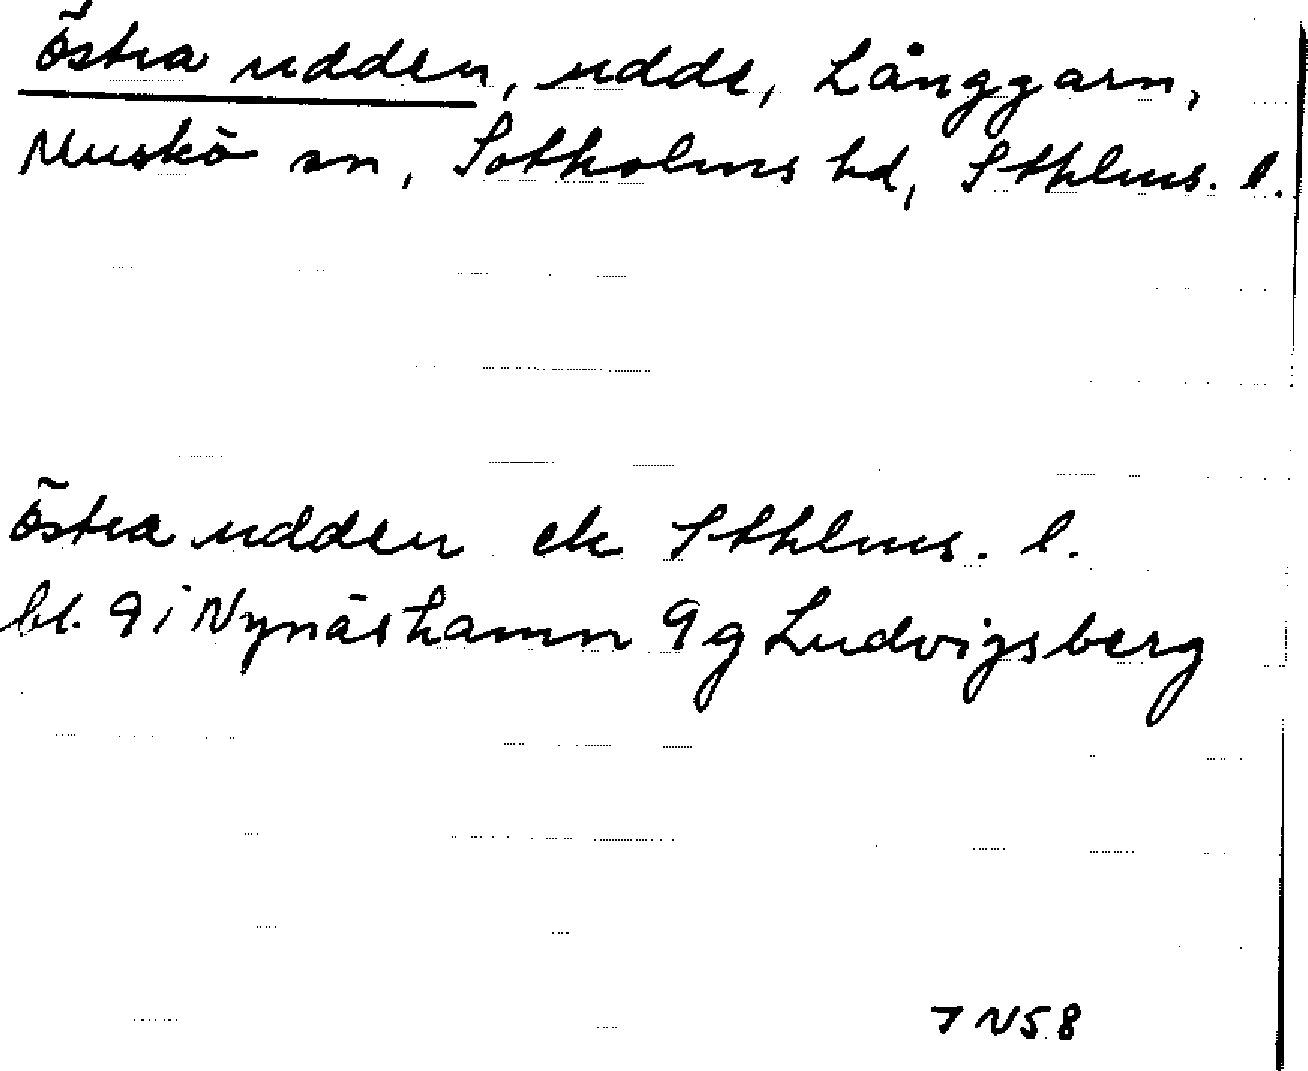 Östra udden, udde, Långgarn,
Muskö sn, Sotholms hd, Sthlms. l.
Östra udden ek Sthlms. l.
bl. 9 i Nynäshamn 9 g Ludvigsberg
7 N5 8